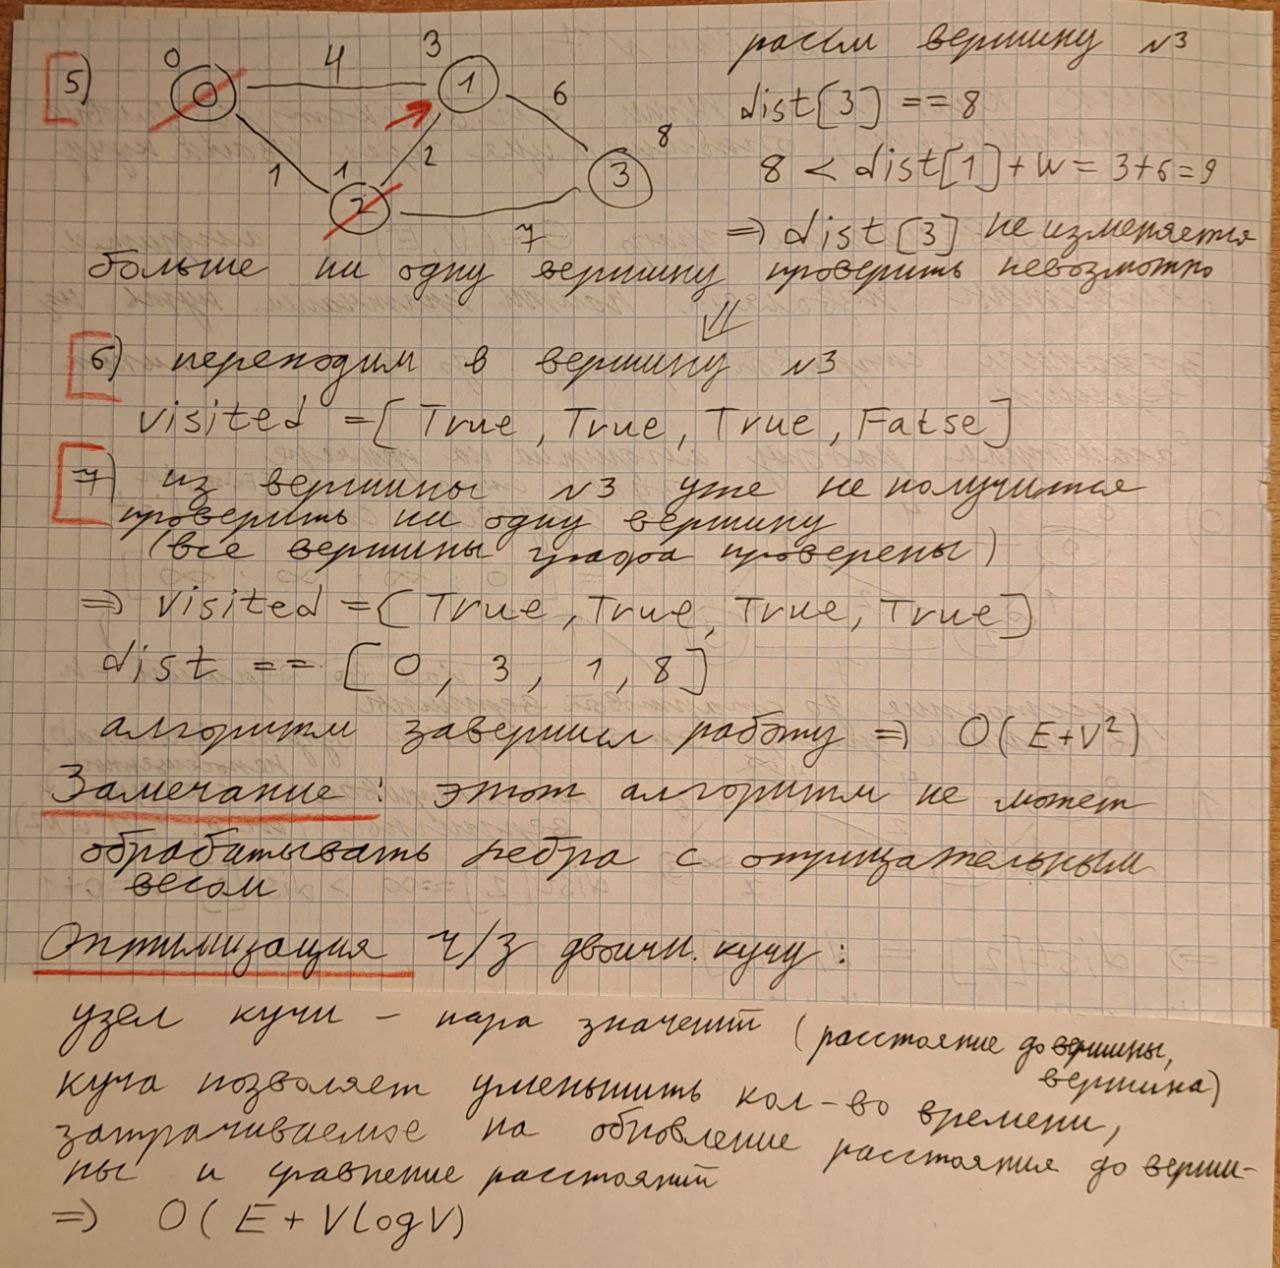 5)
0
0
4
3
1
6
8
3
1
1
2
2
7
рассм вершину №3
dist[3] == 8
8 < dist[1] + w = 3+6=9
=> dist[3] не изменяется
больше ни одну вершину проверить невозможно
6) переходим в вершину №3
visited = [True, True, True, False]
7) из вершины №3 уже не получится
проверить ни одну вершину
(все вершины графа проверены)
=> visited = [True, True, True, True]
dist == [0, 3, 1, 8]
алгоритм завершил работу => O(E+V²)
Замечание: этот алгоритм не может
обрабатывать ребра с отрицательным
весом
Оптимизация ч/з двоичн. кучу:
узел кучи - пара значений (расстояние до вершины,
вершина)
куча позволяет уменьшить кол-во времени,
затрачиваемое на обновление расстояния до верши-
ны и сравнение расстояний
=> O(E + VlogV)